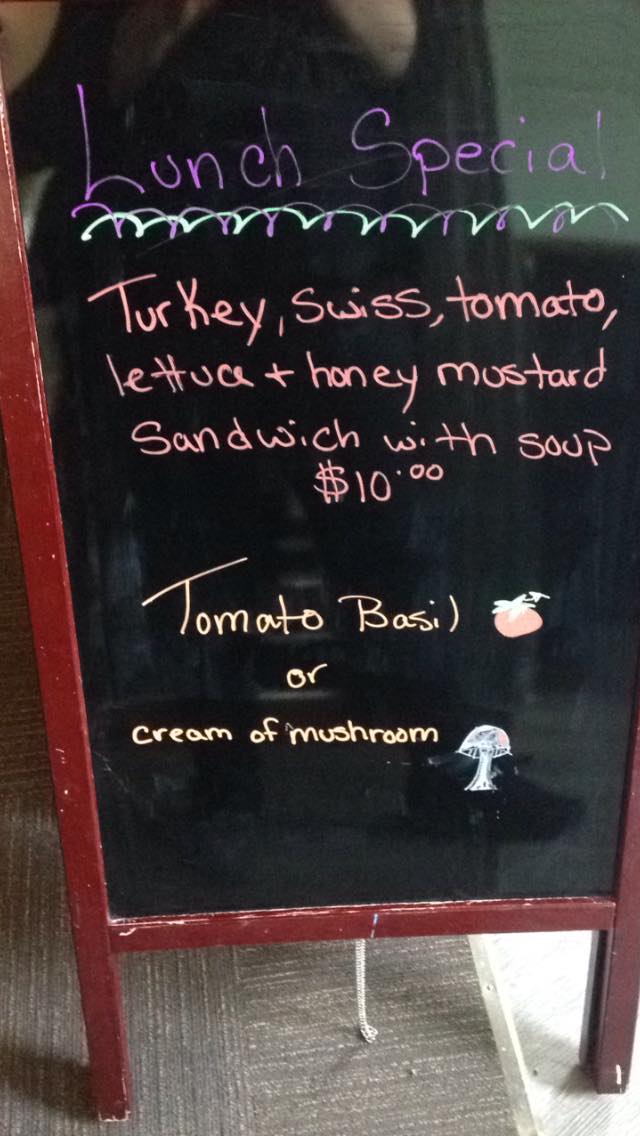 Lunch Special
Turkey, Swiss, tomato,
lettuce + honey mustard
Sandwich with soup
$10.00
Tomato Basil
or
cream of mushroom